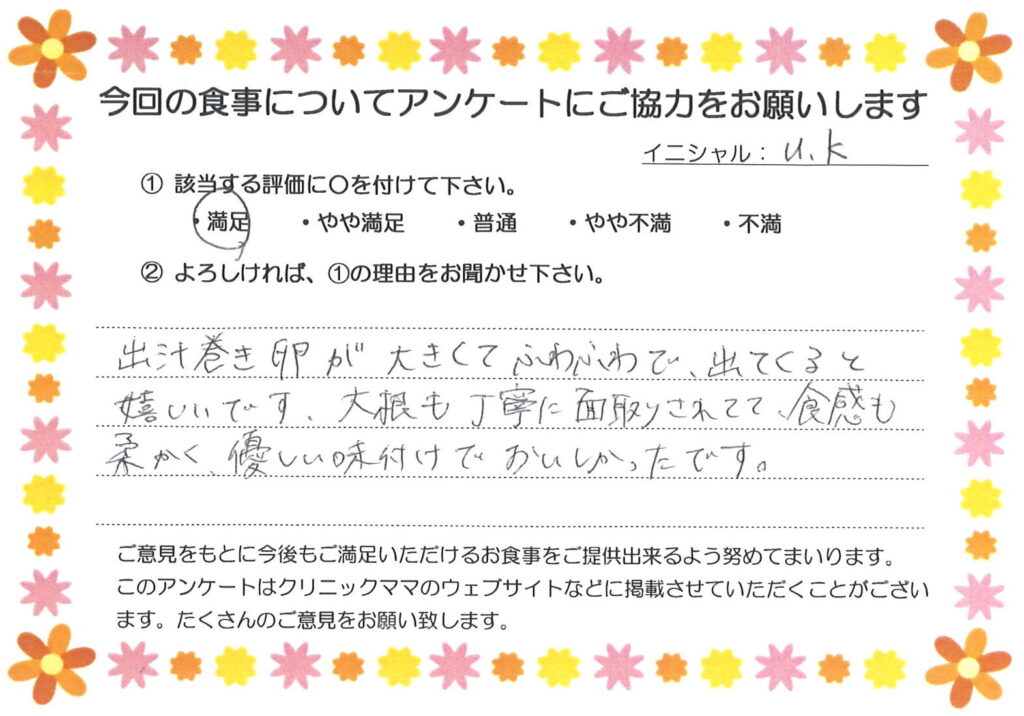 今回の食事についてアンケートにご協力をお願いします
イニシャル： U.K
① 該当する評価に〇を付けて下さい。
・満足 ・やや満足 ・普通 ・やや不満 ・不満
② よろしければ、①の理由をお聞かせ下さい。
出汁巻き卵が大きくてふわふわで、出てくると
嬉しいです、大根も丁寧に面取りされてて、食感も
柔かく、優しい味付けでおいしかったです。
ご意見をもとに今後もご満足いただけるお食事をご提供出来るよう努めてまいります。
このアンケートはクリニックママのウェブサイトなどに掲載させていただくことがござい
ます。たくさんのご意見をお願い致します。